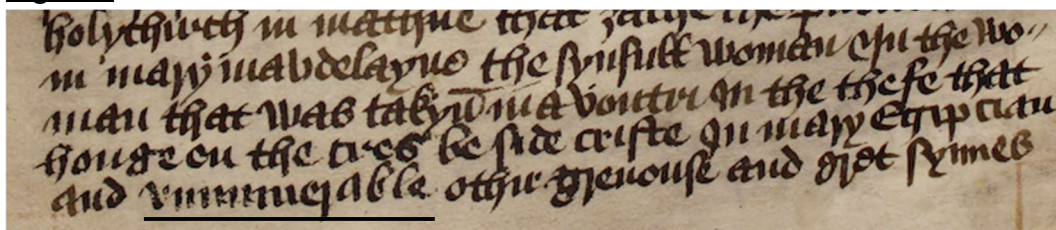 holychirch in mathue that zache the
in mary mawdelayne the synfull woman In the wo-
man that was takyn in a voutri In the thefe that
honge on the tres be side criste In mary Egipcian
and vnnumerable othir greuouse and gret synnes